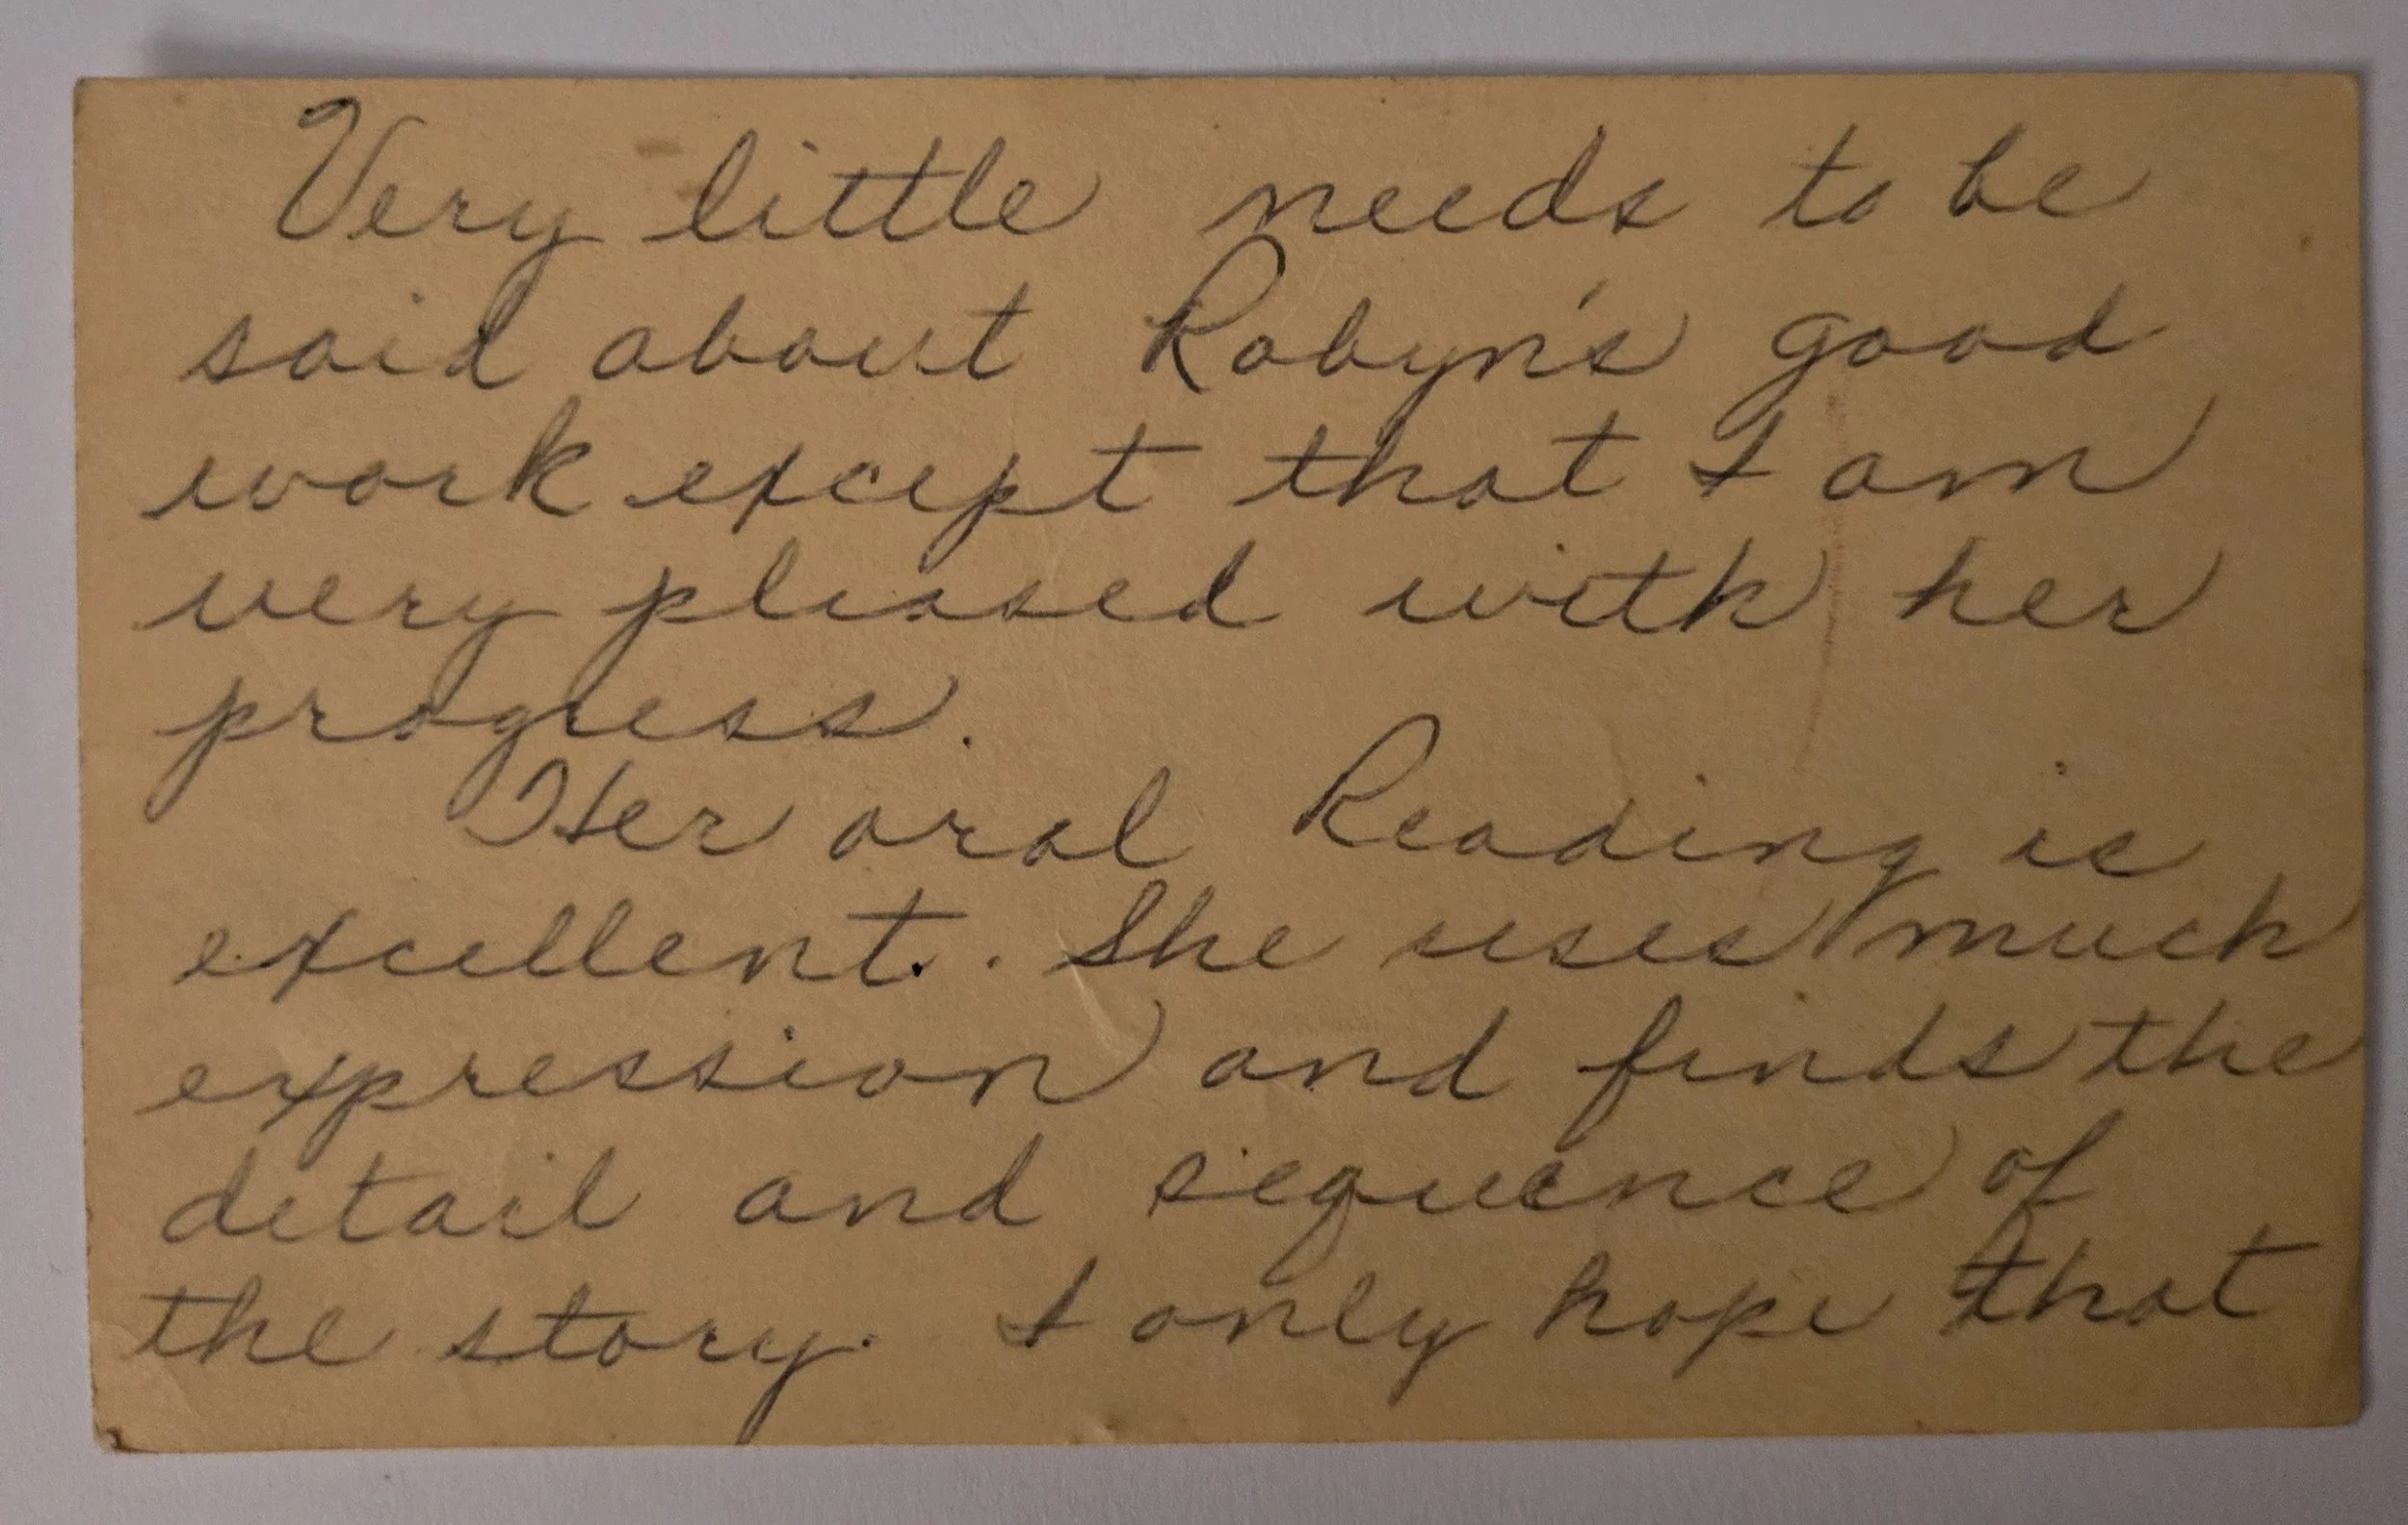 Very little needs to be
said about Robyn's good
work except that I am
very pleased with her
progress.
Her oral Reading is
excellent. She uses much
expression and finds the
detail and sequence of
the story. I only hope that